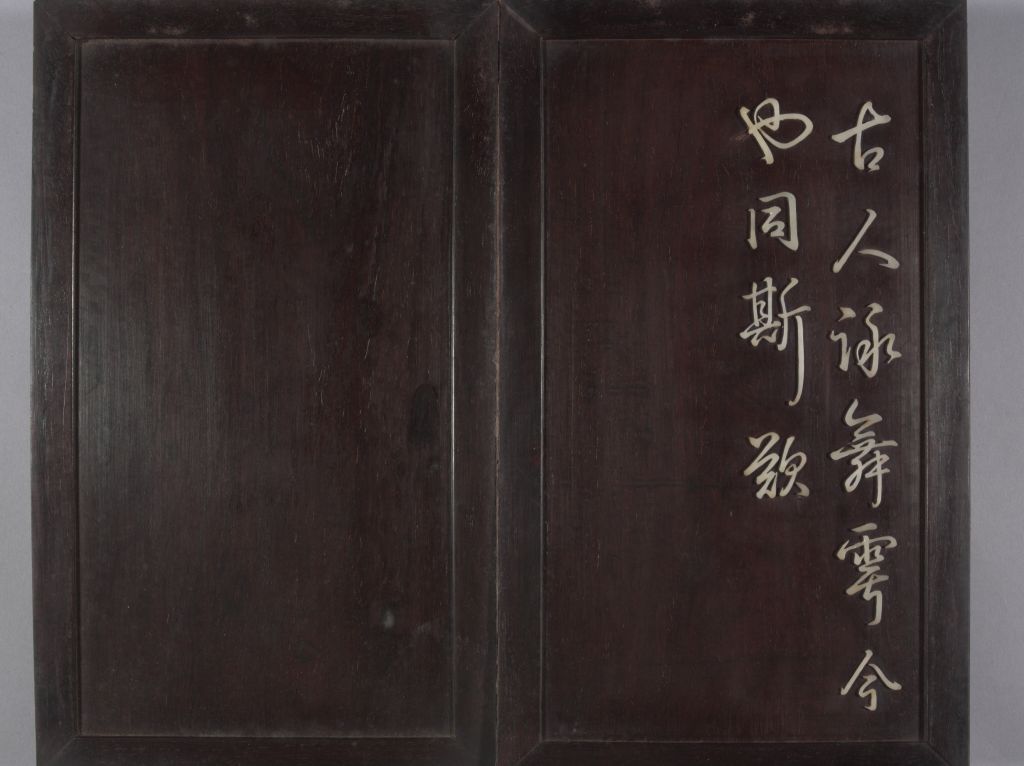 古人詠舞雩今
也同斯歎